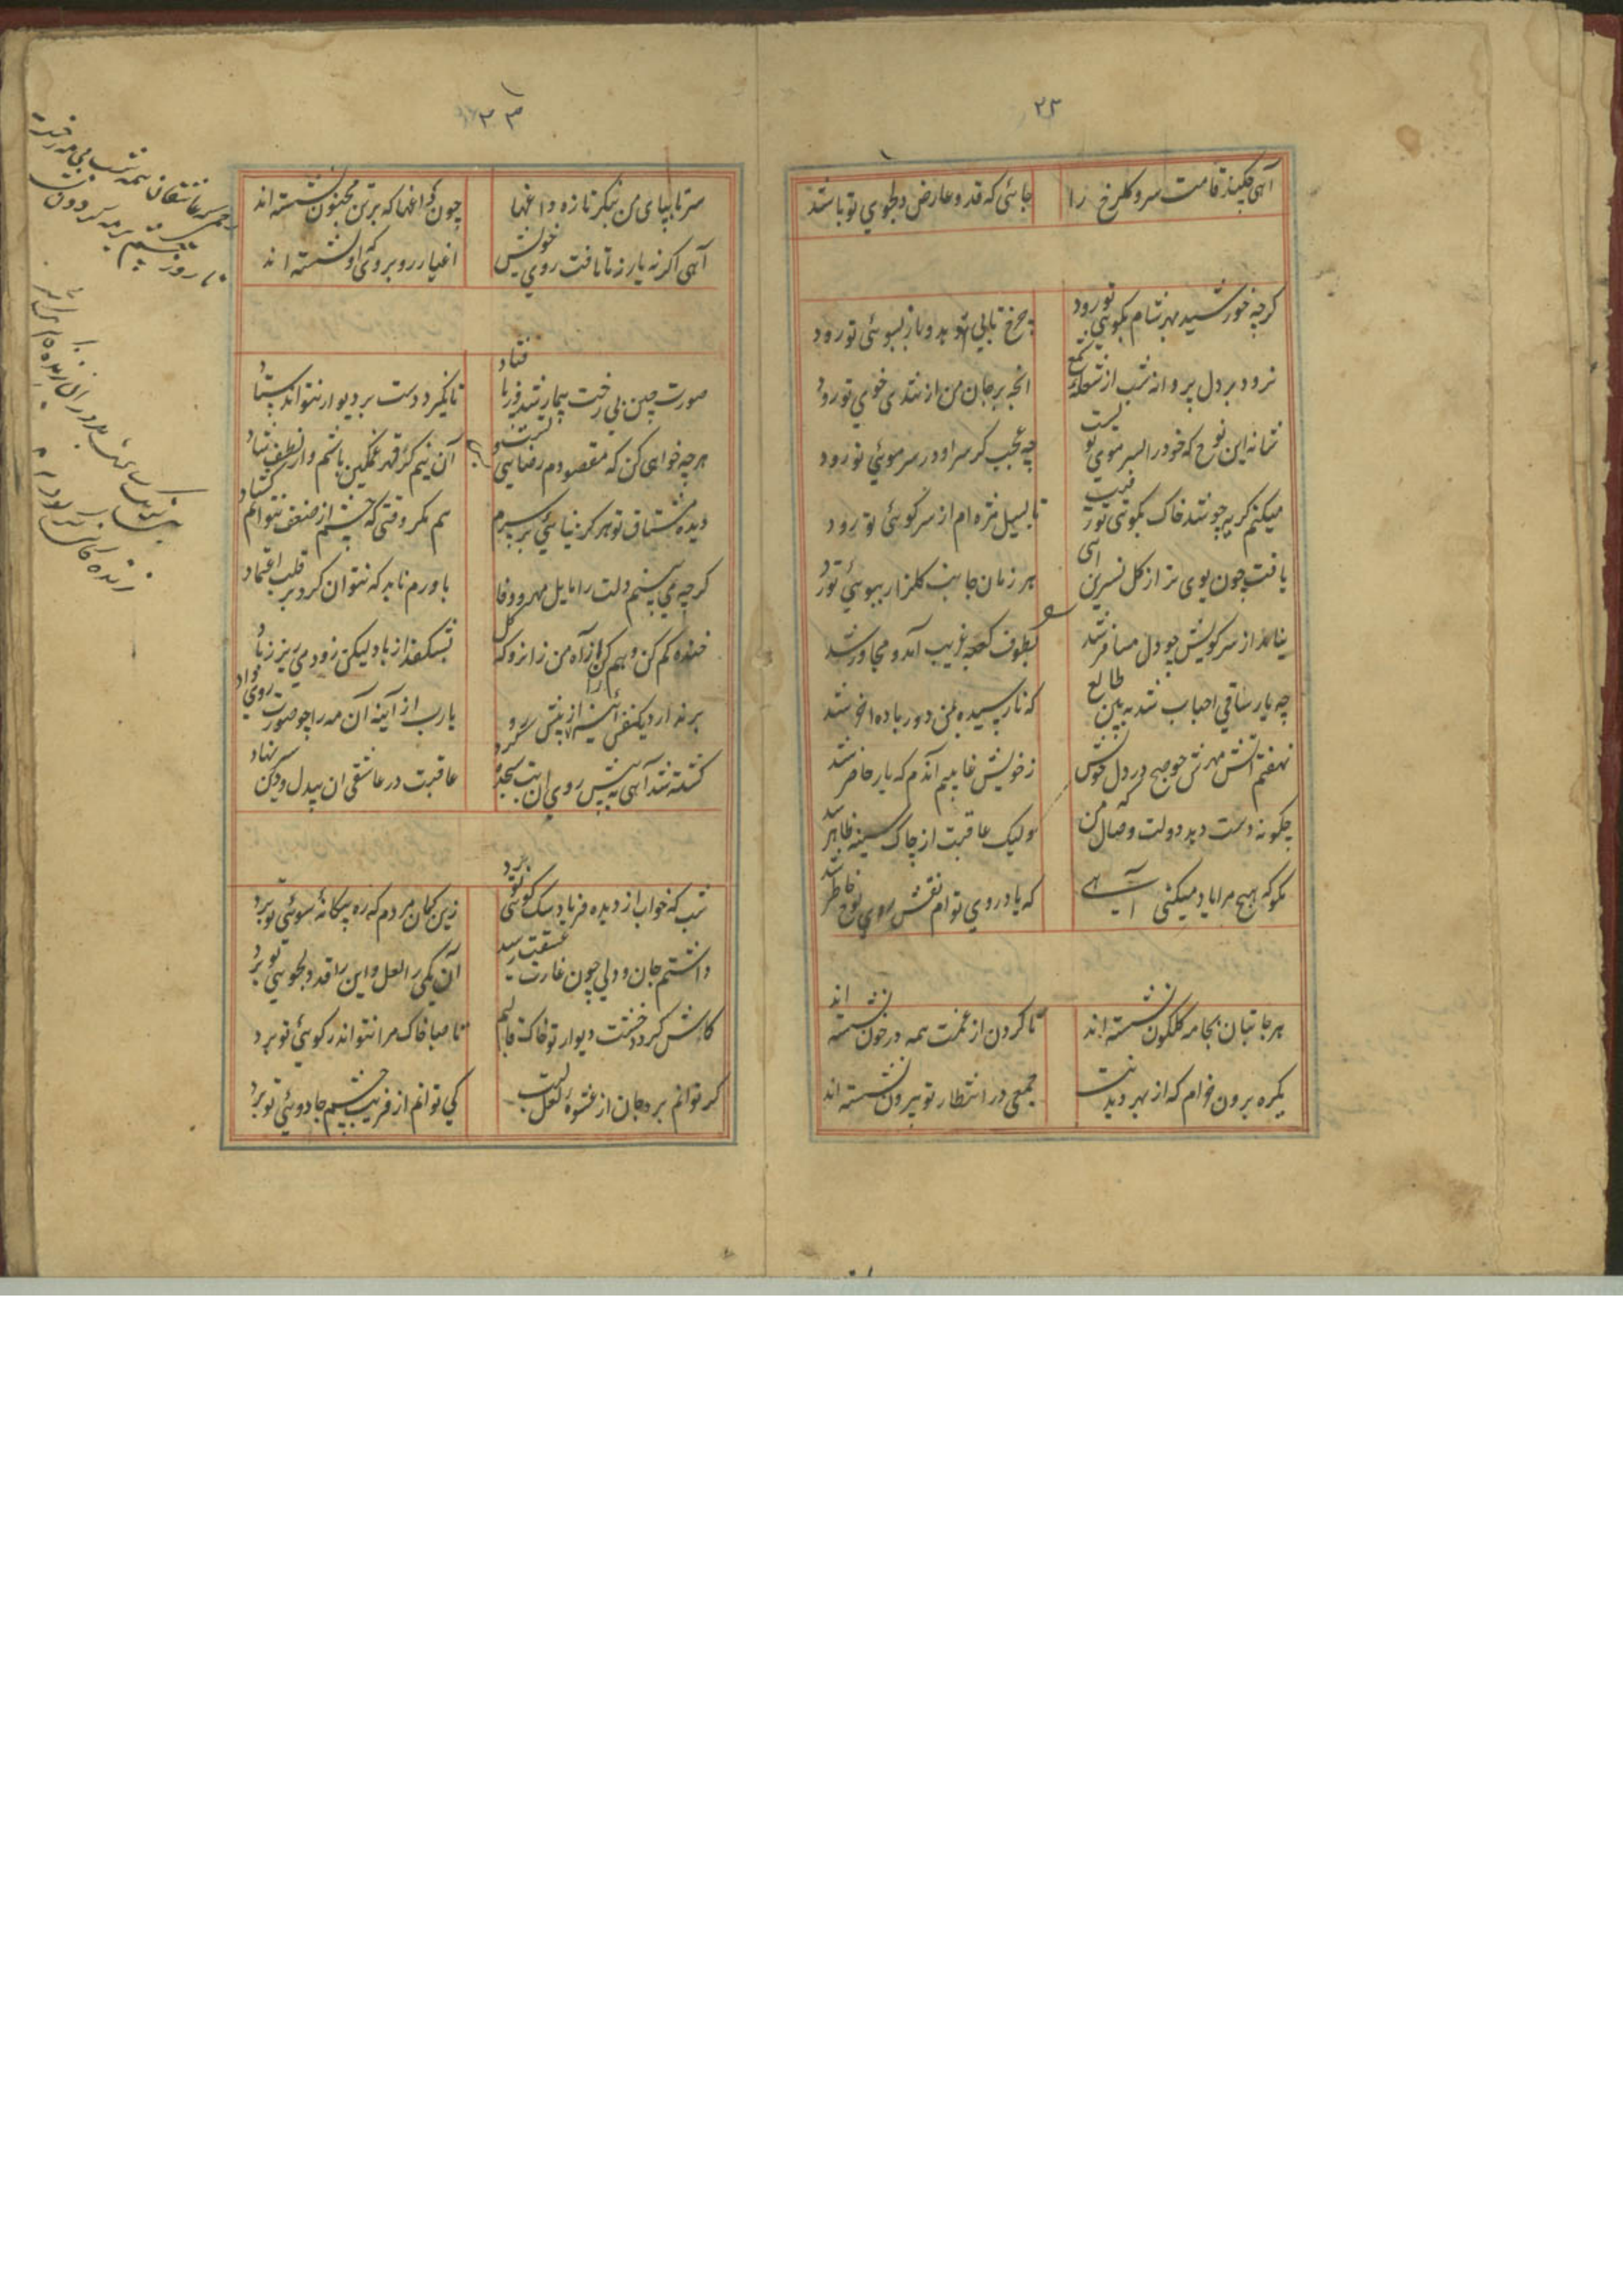 ۲۲
آهی چکند قامت سرو و گلرخ را
جائی که قد و عارض دلجوی تو باشد
گرچه خورشید بهر شام بکوی تو رود
چرخ تابی دهد و باز بسوئی تو رود
نرود بر دل پروانه شب از شعله شمع
انچه بر جان من از تندی خوی تو رود
شانه این نوع که خود را بسر موی تو بست
چه عجب گر سر او در سر موئی تو رود
میکنم گریه چو شد خاک بکوی تو رقیب
تا بسیل مژه ام از سر کوئی تو رود
یافت چون بوی تو از گل نسرین آهی
هر زمان جانب گلزار ببوئی تو رود
ز سر کویش چو دل مسافر شد
بطوف کعبه غریب آمد و مجاور شد
چه یار ساقی احباب شد ببین طالع
که نارسیده بمن دور باده اخر شد
نهفتم آتش مهرش چو صبح در دل خویش
ولیک عاقبت از چاک سینه ظاهر شد
چگونه دست دهد دولت وصال که من
ز خویش غایبم آندم که یار حاضر شد
مگو که هیچ مرا یاد میکنی آهی
که یاد روی توام نقش لوح خاطر شد
هر جا بتان بجامه گلگون نشسته اند
تا گردن از غمت همه در خون نشسته اند
یکره برون خرام که از بهر دیدنت
جمعی در انتظار تو بیرون نشسته اند
۲۳
سر تا بپای من بنگر تازه داغها
چون زاغها که بر تن مجنون نشسته اند
آهی اگر نه یار ز ما تافت روی خویش
اغیار رو بروی او نشسته اند
صورت چین بی رخت بیمار شد از پا فتاد
تا نگیرد دست بر دیوار نتواند ستاد
هرچه خواهی کن که مقصودم رضای تست و بس
آن نیم کز قهر غمگین باشم و از لطف شاد
دیده مشتاق تو هرگه نیائی بر سرم
هم مگر وقتی که چشم از ضعف نتوانم گشاد
گرچه می بینم دلت را مایل مهر و وفا
باورم ناید که نتوان کرد بر قلب اعتماد
خنده کم کن و هم کن از آه من زانرو که گل
بشکفد از باد لیکن زود میریزد ز باد
بر ندارد یکنفس آئینه را از پیش رو
یارب از آینه آن مه را چو صورت روی داد
کشته شد آهی به پیش روی ان بت سجده کرد
عاقبت در عاشقی ان بیدل و دین سر نهاد
شب که خواب از دیده فریاد سگ کوئی تو برد
زین گمان مردم که ره بیگانه سوئی تو برد
داشتم جان و دلی چون غارت عشقت رسید
آن یکی را لعل و این را قد دلجوئی تو برد
کاش گردد خشت دیوار تو خاک قالبم
تا صبا خاک مرا نتواند ز کوئی تو برد
گر توانم برد جان از عشوه لعل لبت
کی توانم از فریب چشم جادوئی تو برد